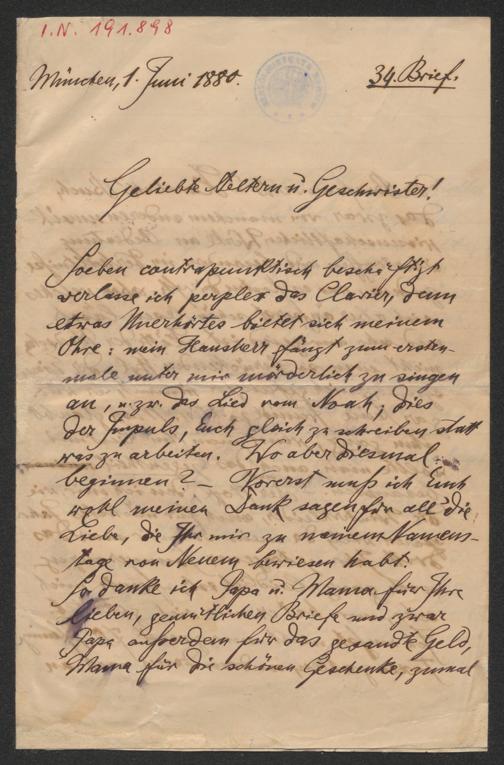 I.N. 191.898
München, 1. Juni 1880.
34. Brief.
Geliebte Aeltern u. Geschwister!
Soeben contrapunktisch beschäftigt
verlasse ich perplex das Clavier, denn
etwas Unerhörtes bietet sich meinem
Ohre: mein Hausherr fängt zum ersten-
male unter mir mörderlich zu singen
an, u. zw. das Lied vom Noah, dies
der Impuls, Euch gleich zu schreiben statt
was zu arbeiten. Wo aber diesmal
beginnen? – Vorerst muß ich Euch
wohl meinen Dank sagen für all' die
Liebe, die Ihr mir zu meinem Namens-
tage von Neuem bewiesen habt.
So danke ich Papa u. Mama für Ihre
lieben, gemütlichen Briefe und zwar
Papa außerdem für das gesandte Geld,
Mama für die schönen Geschenke, zumal